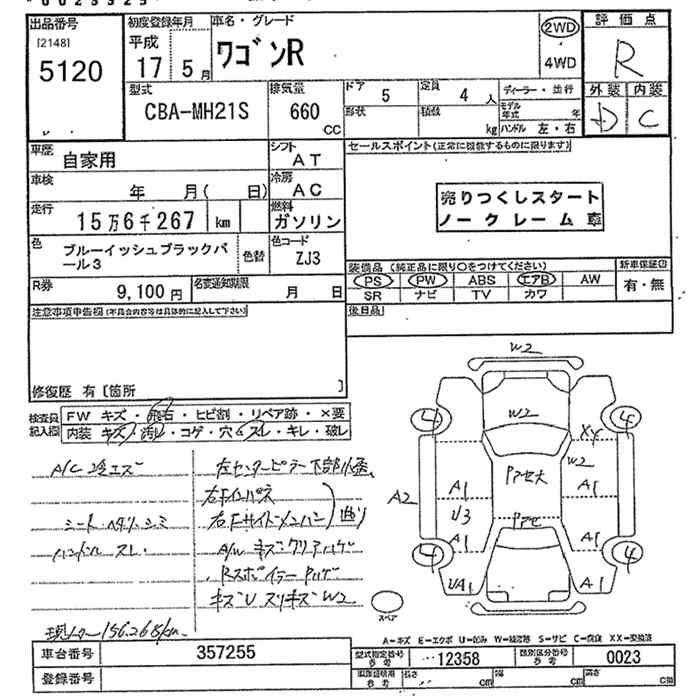 出品番号
[2148]
5120
初度登録年月
平成
17 5月
車名・グレード
ワゴンR
2WD
4WD
評価点
R
外装 内装
D C
型式
CBA-MH21S
排気量
660
CC
ドア 5
定員 4 人
形状
積数 kg
ディーラー・並行
モデル年式 年
ハンドル 左・右
車歴
自家用
シフト
AT
セールスポイント(正常に機能するものに限ります)
車検
年 月( 日)
冷房
AC
売りつくしスタート
ノークレーム車
走行
15万6千267 km
燃料
ガソリン
色
ブルーイッシュブラックパール3
色替
色コード
ZJ3
装備品(純正品に限り○をつけてください)
新車保証書
PS PW ABS エアB AW
有・無
SR ナビ TV カワ
R券
9,100円
名変通知期限
月 日
注意事項申告欄(不具合内容等は具体的に記入して下さい)
後日品
修復歴 有〔箇所 〕
検査員記入欄
FW キズ・飛石・ヒビ割・リペア跡・×要
内装 キズ・汚レ・コゲ・穴・スレ・キレ・破レ
A/C 冷エズ
シート ヘタリ シミ
ハンドル スレ
左センターピラー下部小歪
右Fインパネ
右Fサイドメンバー
曲り
A/W キズ クリアハゲ
RスポイラーPハゲ
キズU スリキズ W2
現メーター156,268km
W2
W2
4
4
XY
W2
Pアセ大
A2
A1
A1
U3
Pアセ
A1
A1
4
4
UA1
A1
スペア
A-キズ E-エクボ U-凹み W-補修跡 S-サビ C-腐食 XX-交換済
車台番号
357255
型式指定番号 参考
12358
類別区分番号 参考
0023
登録番号
車庫証明用 参考
長さ cm
幅 cm
高さ cm